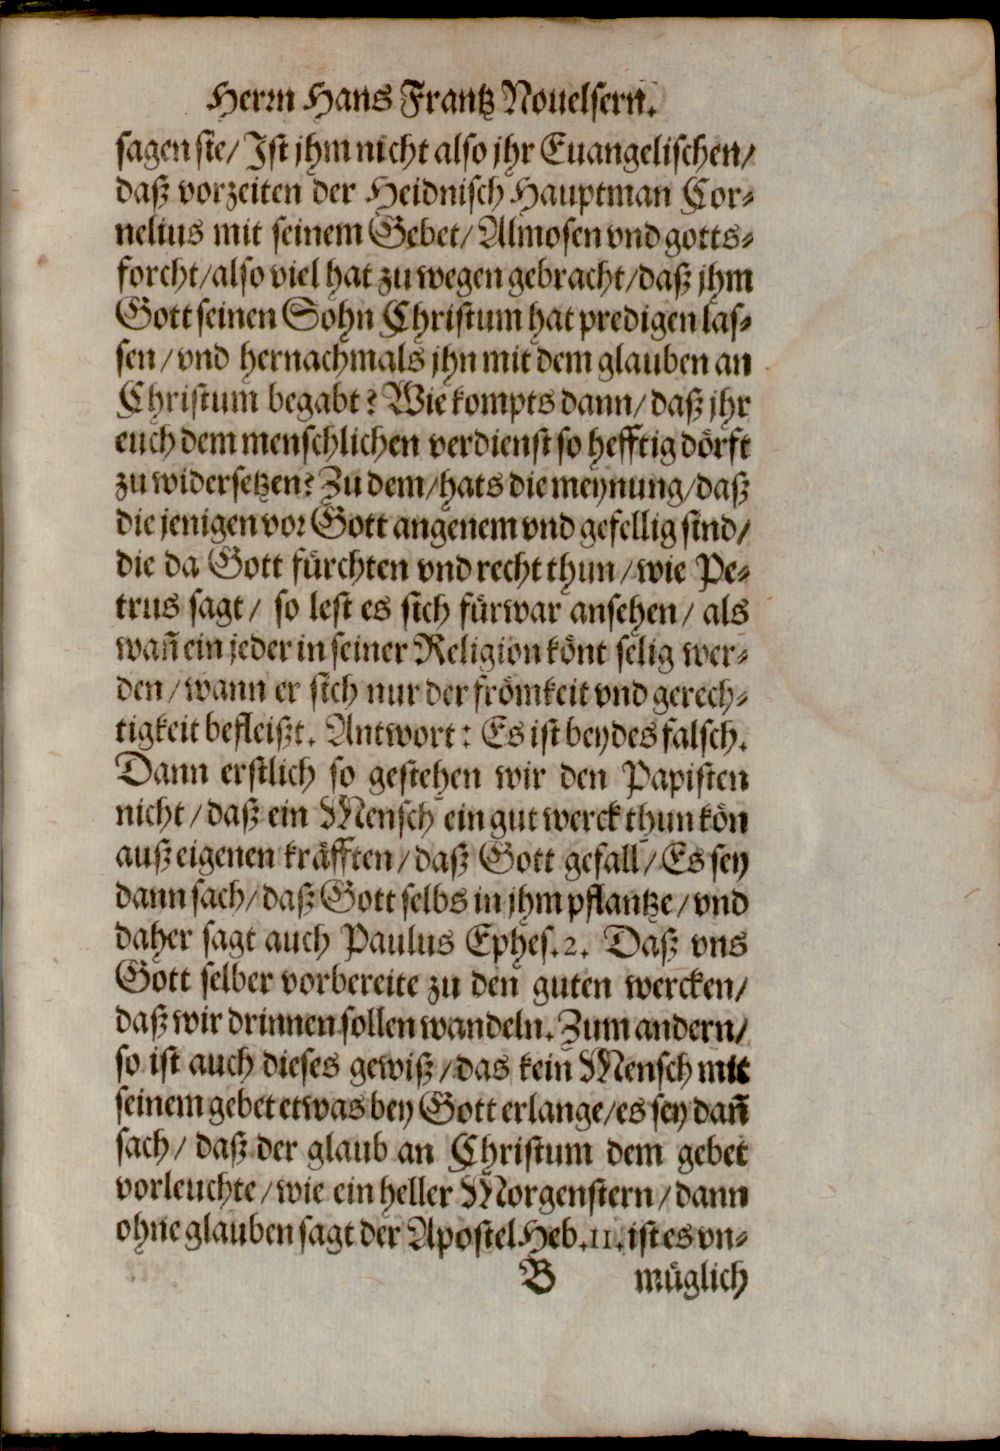 Herrn Hans Frantz Nouelsern.
sagen sie/ Ist jhm nicht also jhr Euangelischen/
daß vorzeiten der Heidnisch Hauptman Cor⸗
nelius mit seinem Gebet/ Almosen vnd gotts⸗
forcht/ also viel hat zu wegen gebracht/ daß jhm
Gott seinen Sohn Christum hat predigen las⸗
sen/ vnd hernachmals jhn mit dem glauben an
Christum begabt? Wie kompts dann/ daß jhr
euch dem menschlichen verdienst so hefftig dörft
zu widersetzen? Zu dem/ hats die meynung/ daß
die jenigen vor Gott angenem vnd gefellig sind/
die da Gott fürchten vnd recht thun/ wie Pe⸗
trus sagt/ so lest es sich fürwar ansehen/ als
wañ ein jeder in seiner Religion könt selig wer⸗
den/ wann er sich nur der frömkeit vnd gerech⸗
tigkeit befleißt. Antwort: Es ist beydes falsch.
Dann erstlich so gestehen wir den Papisten
nicht/ daß ein Mensch ein gut werck thun kön
auß eigenen kräfften/ daß Gott gefall/ Es sey
dann sach/ daß Gott selbs in jhm pflantze/ vnd
daher sagt auch Paulus Ephes. 2. Daß vns
Gott selber vorbereite zu den guten wercken/
daß wir drinnen sollen wandeln. Zum andern/
so ist auch dieses gewiß/ das kein Mensch mit
seinem gebet etwas bey Gott erlange/ es sey dañ
sach/ daß der glaub an Christum dem gebet
vorleuchte/ wie ein heller Morgenstern/ dann
ohne glauben sagt der Apostel Heb. 11. ist es vn⸗
B müglich